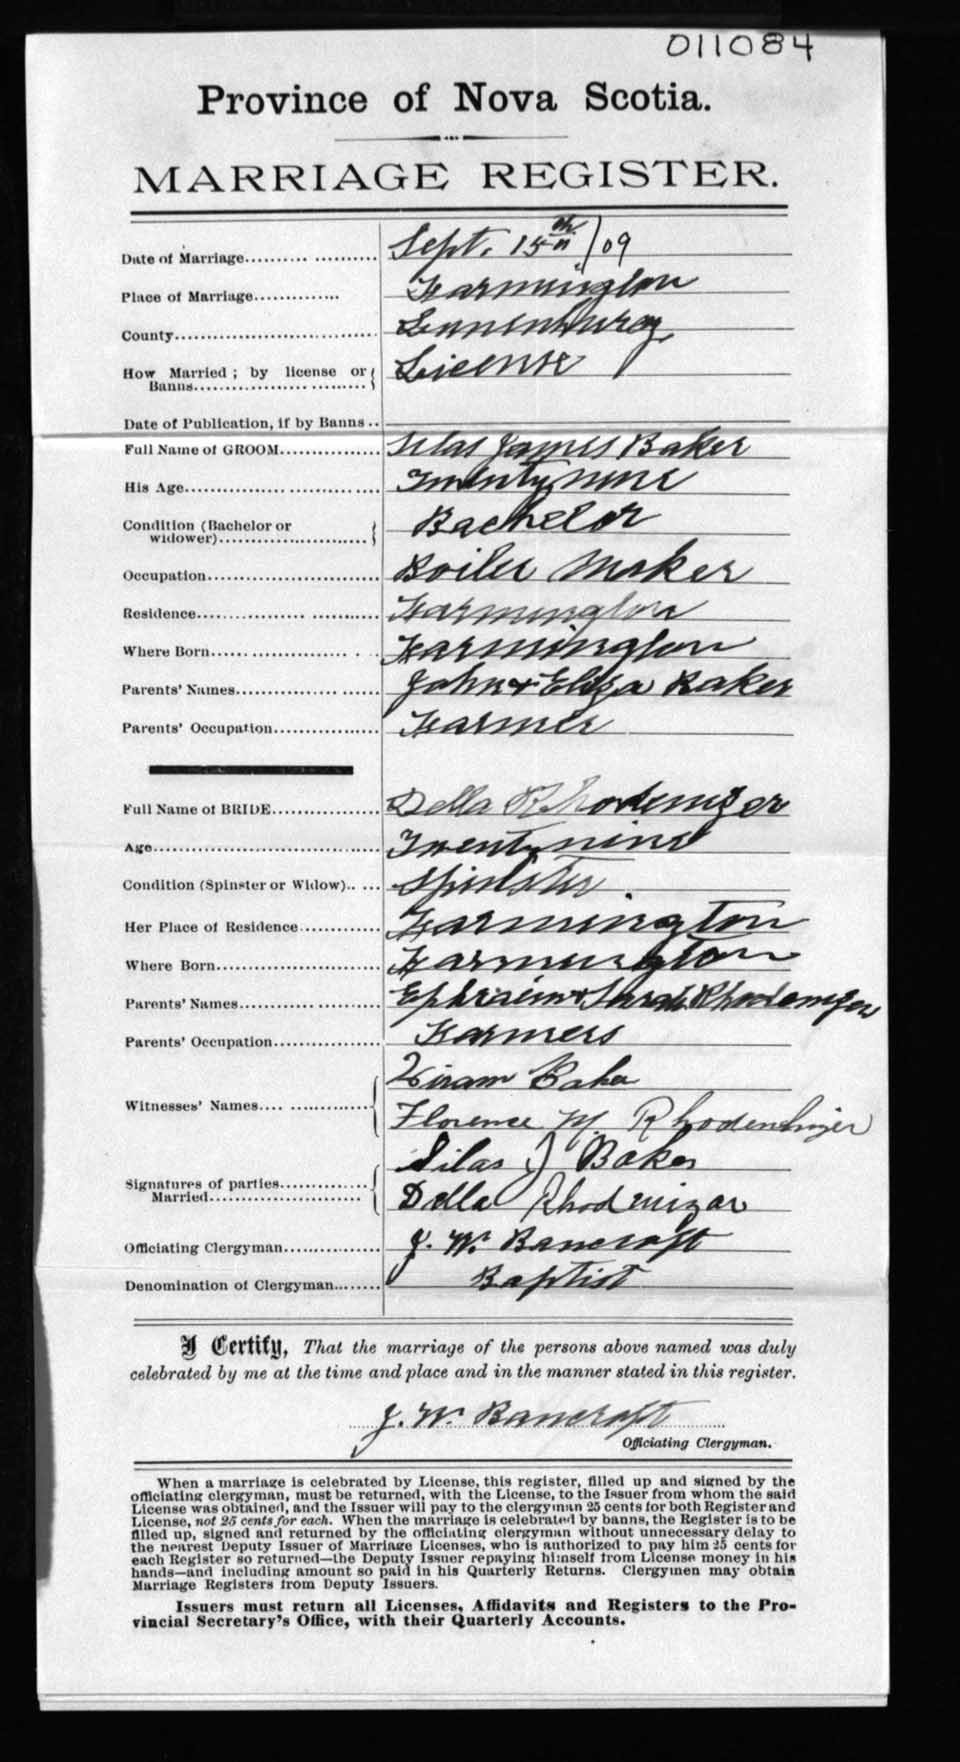 011084
Province of Nova Scotia.
MARRIAGE REGISTER.
Date of Marriage.................... Sept. 15th /09
Place of Marriage.............. Farmington
County.............................. Lunenburg
How Married; by license or
Banns.............................. License
Date of Publication, if by Banns ..
Full Name of GROOM................. Silas James Baker
His Age.............................. Twenty nine
Condition (Bachelor or
widower).......................... Bachelor
Occupation.............................. Boiler Maker
Residence.............................. Farmington
Where Born.............................. Farmington
Parents' Names.............................. John & Eliza Baker
Parents' Occupation.................. Farmer
Full Name of BRIDE.................. Della Rhodenizer
Age.............................. Twenty nine
Condition (Spinster or Widow)..... Spinster.
Her Place of Residence............. Farmington
Where Born.............................. Farmington
Parents' Names.............................. Ephraim & Sarah Rhodenizer
Parents' Occupation.................. Farmers
Hiram Baker
Witnesses' Names....................
Florence M. Rhodenhizer
Silas J Baker
Signatures of parties..............
Married.............................. Della Rhodenizar
Officiating Clergyman................ J. W. Bancroft
Denomination of Clergyman........ Baptist
I Certify, That the marriage of the persons above named was duly
celebrated by me at the time and place and in the manner stated in this register.
J. W. Bancroft
Officiating Clergyman.
When a marriage is celebrated by License, this register, filled up and signed by the
officiating clergyman, must be returned, with the License, to the Issuer from whom the said
License was obtained, and the Issuer will pay to the clergyman 25 cents for both Register and
License, not 25 cents for each. When the marriage is celebrated by banns, the Register is to be
filled up, signed and returned by the officiating clergyman without unnecessary delay to
the nearest Deputy Issuer of Marriage Licenses, who is authorized to pay him 25 cents for
each Register so returned—the Deputy Issuer repaying himself from License money in his
hands—and including amount so paid in his Quarterly Returns. Clergymen may obtain
Marriage Registers from Deputy Issuers.
Issuers must return all Licenses, Affidavits and Registers to the Pro-
vincial Secretary's Office, with their Quarterly Accounts.